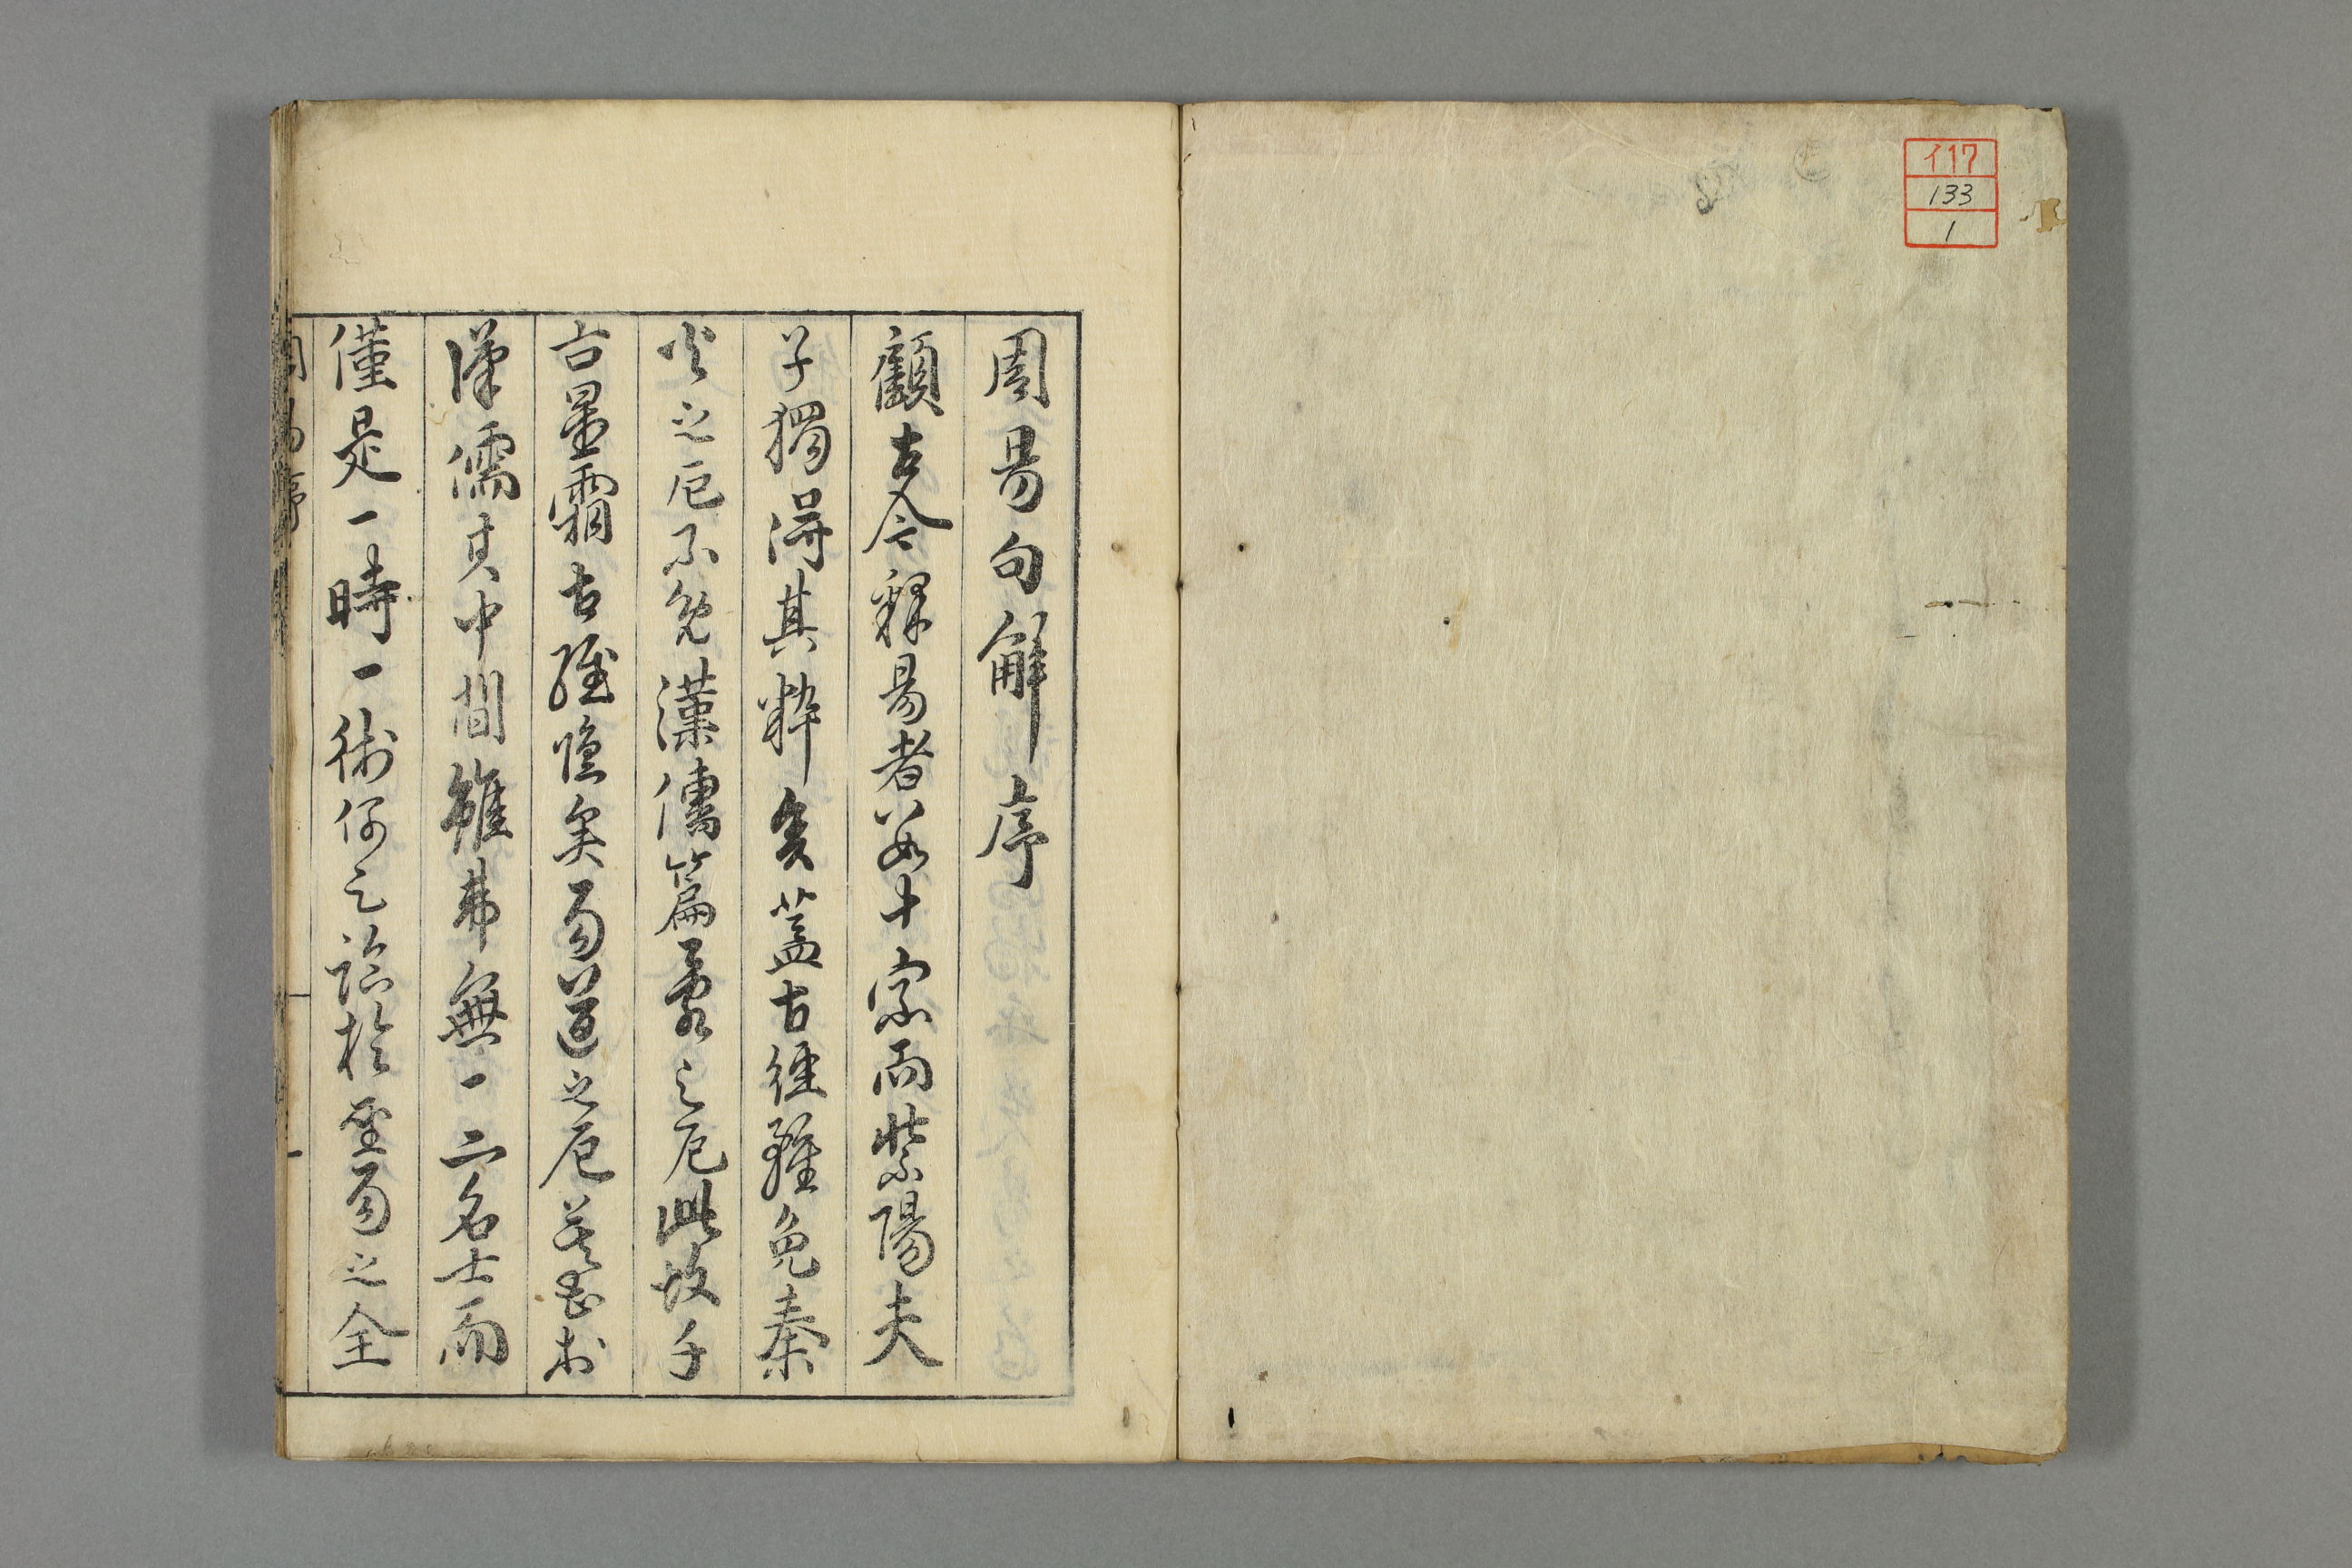 イ17
133
1
周易句解序
顧古今釋易者數十家而紫陽夫
子獨得其粹矣蓋古經雖免秦
火之厄不免漢儒篇之厄此故千
古星霜古經隱矣易道之厄甚哉
漢儒其中間雖弗無一二名士而
僅是一時一術何之論於聖易之全
周易序
一